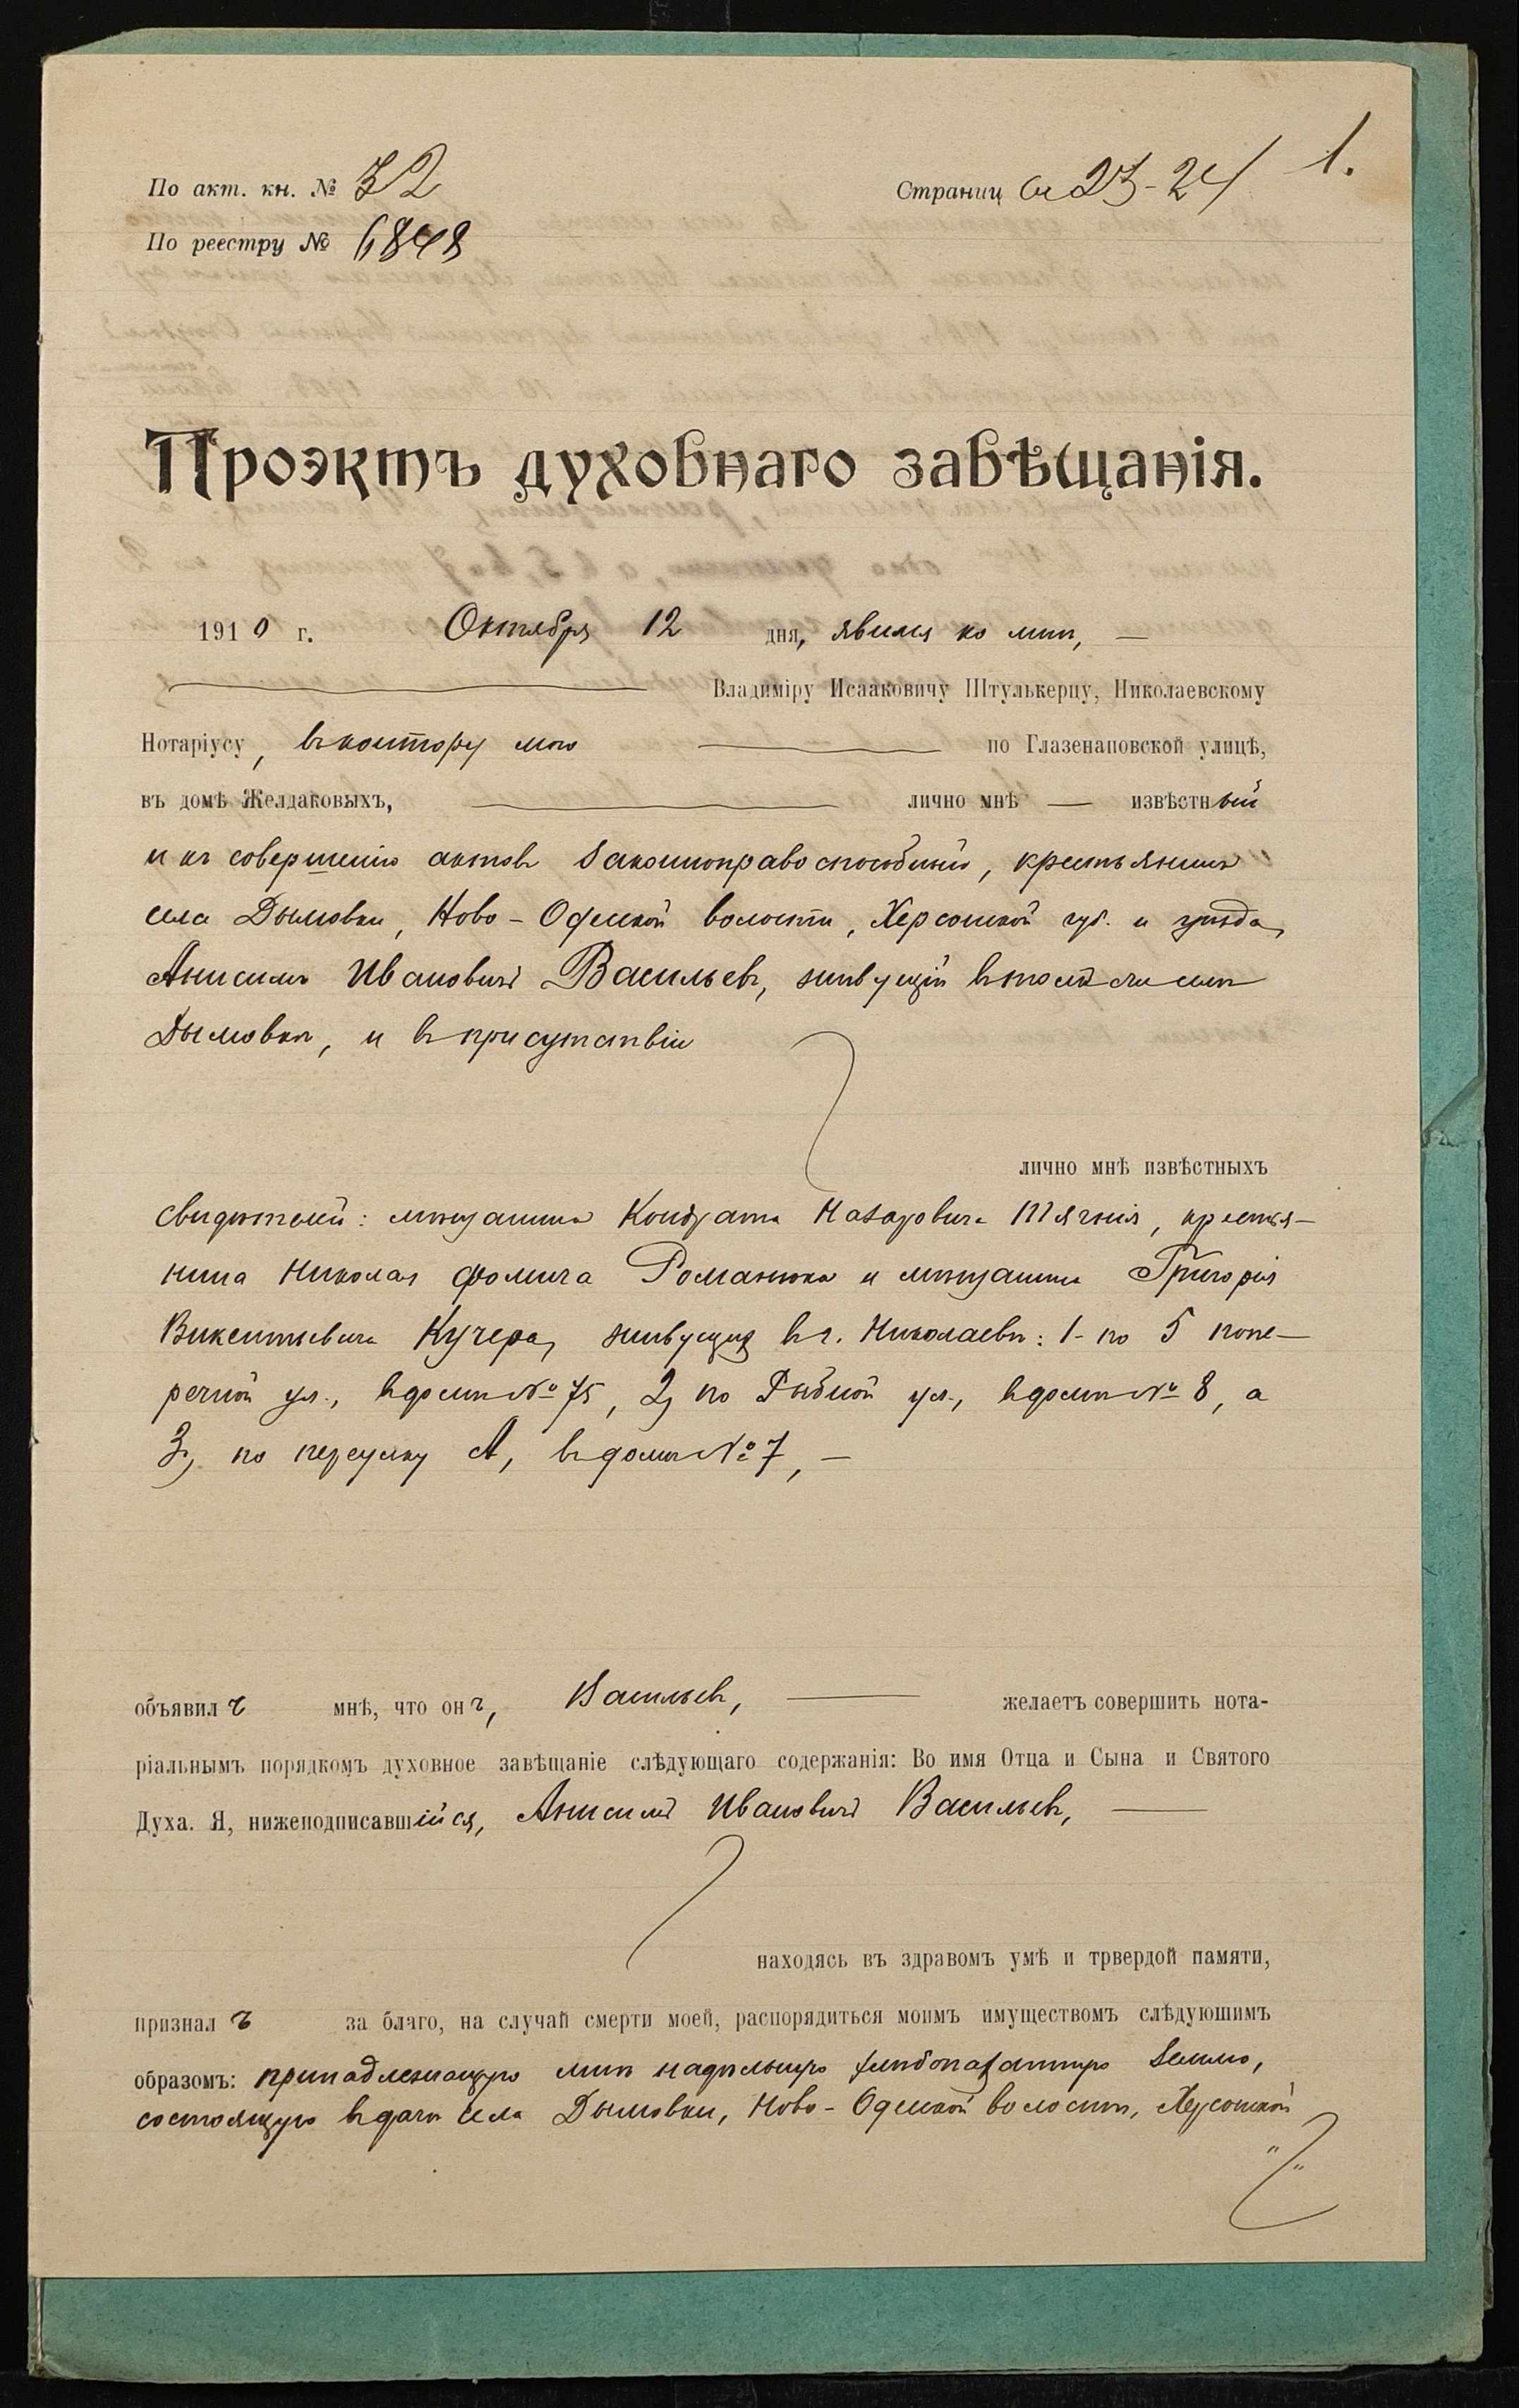 1.
По акт. кн. № 32
Страниц 23-24
По реестру № 6848
Проэктъ духовнаго завѣщанія.
1910 г. Октября 12 дня, явился ко мнѣ, —
Владиміру Исааковичу Штулькерцу, Николаевскому
Нотаріусу, въ контору мою по Глазенаповской улицѣ,
въ домѣ Желдаковыхъ, лично мнѣ — извѣстный
и къ совершенію актовъ законноправоспособный, крестьянинъ
села Дымовки, Ново-Одесской волости, Херсонской губ. и уѣзда,
Анисимъ Ивановичъ Васильевъ, живущій въ томъ же селѣ
Дымовкѣ, и въ присутствіи
лично мнѣ извѣстныхъ
свидѣтелей: мѣщанина Кондрата Назаровича Тягнія, крестья-
нина Николая Фомича Романюка и мѣщанина Григорія
Викентьевича Кучера, живущихъ въ г. Николаевѣ: 1- по 5 попе-
речной ул., въ домѣ № 75, 2, по Рыбной ул., въ домѣ № 8, а
3, по переулку А, въ домѣ № 7, —
объявилъ мнѣ, что онъ, Васильевъ, желаетъ совершить нота-
ріальнымъ порядкомъ духовное завѣщаніе слѣдующаго содержанія: Во имя Отца и Сына и Святого
Духа. Я, нижеподписавшійся, Анисимъ Ивановичъ Васильевъ,
находясь въ здравомъ умѣ и трвердой памяти,
призналъ за благо, на случай смерти моей, распорядиться моимъ имуществомъ слѣдуюшимъ
образомъ: принадлежащую мнѣ надѣльную хлѣбопахатную землю,
состоящую въ дачѣ села Дымовки, Ново-Одесской волости, Херсонской